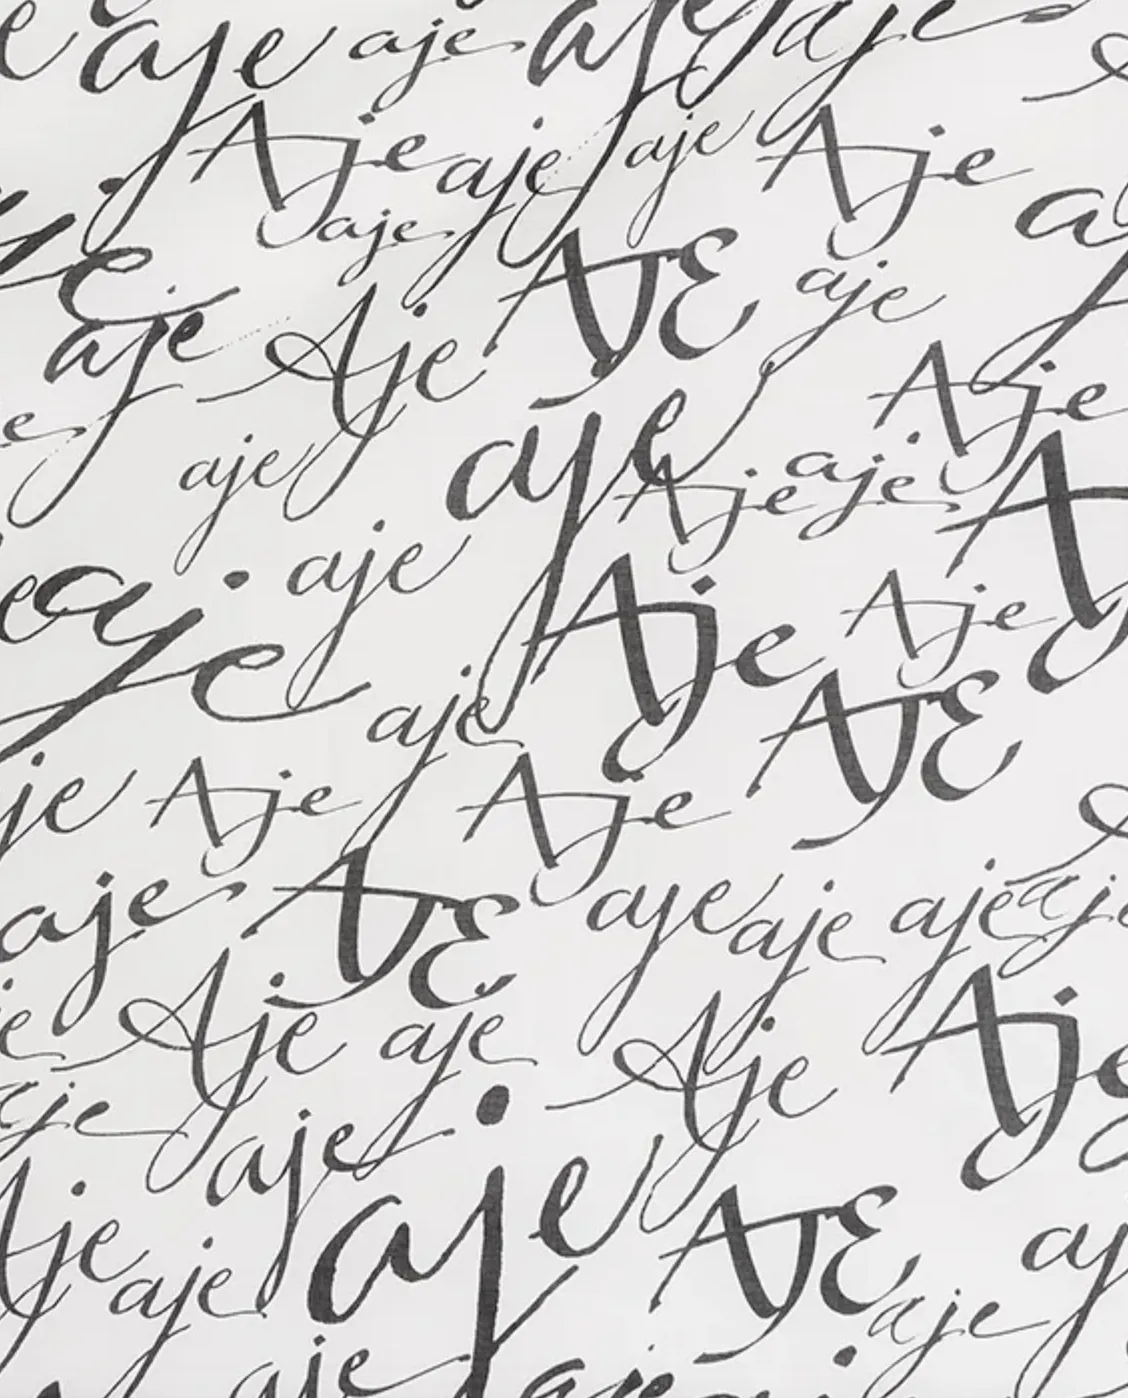 aje aje aje aje
Aje aje aje Aje
aje AJE aje
aje Aje
Aje
aje aje Aje aje
aje
aje Aje Aje
aje
aje AJE
Aje Aje
aje AJE aje aje aje aje
Aje aje Aje Aje
aje
aje aje AJE
Aje aje aje
aje